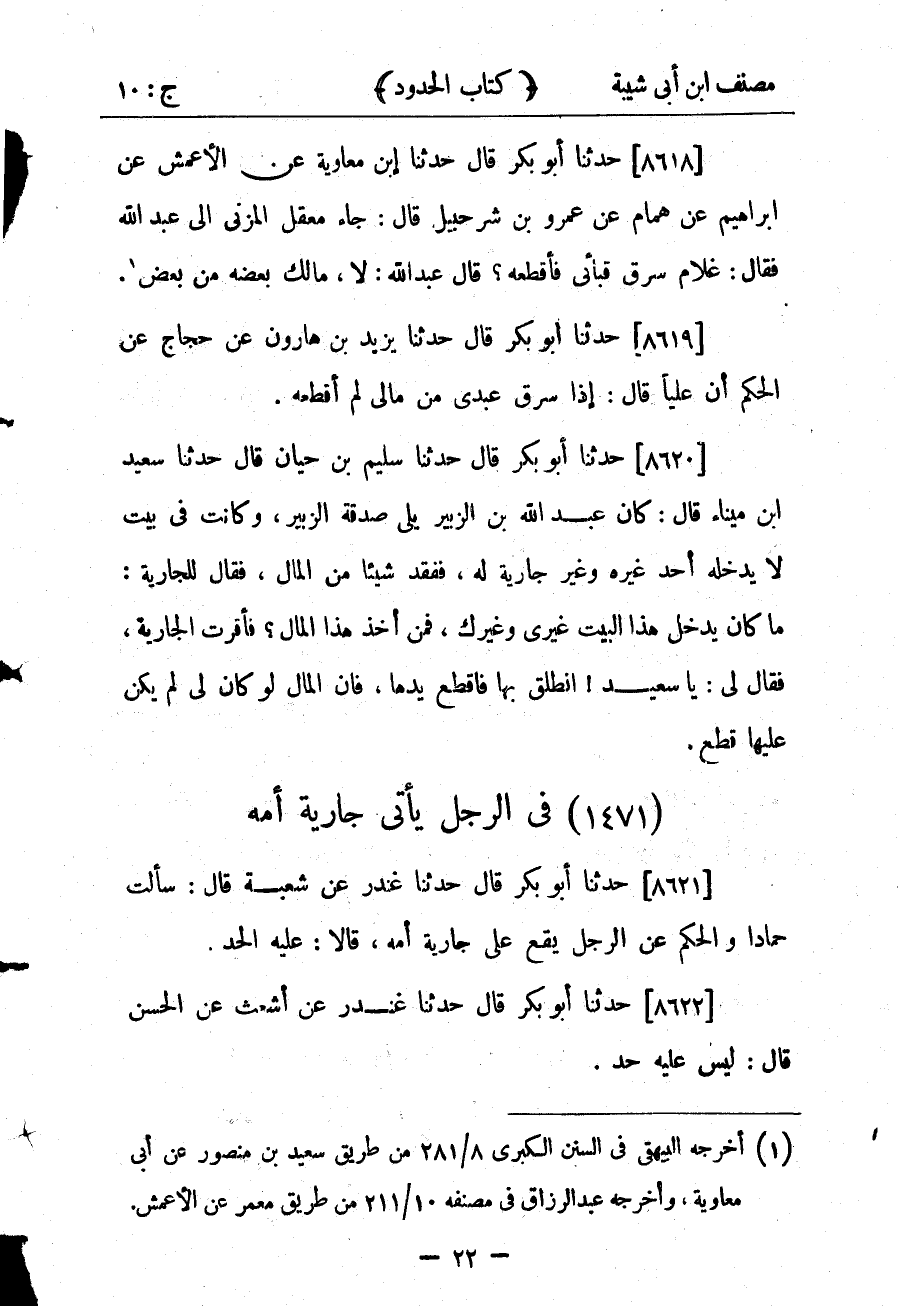 مصنف ابن أبى شيبة ﴿ كتاب الحدود ﴾ ج : ١٠
[٨٦١٨] حدثنا أبو بكر قال حدثنا إبن معاوية عن الأعمش عن
ابراهيم عن همام عن عمرو بن شرحبيل قال : جاء معقل المزنى الى عبد الله
فقال : غلام سرق قبائى فأقطعه ؟ قال عبدالله : لا ، مالك بعضه من بعض١ .
[٨٦١٩] حدثنا أبو بكر قال حدثنا يزيد بن هارون عن حجاج عن
الحكم أن علياً قال : إذا سرق عبدى من مالى لم أقطعه .
[٨٦٢٠] حدثنا أبو بكر قال حدثنا سليم بن حيان قال حدثنا سعيد
ابن ميناء قال : كان عبد الله بن الزبير يلى صدقة الزبير ، وكانت فى بيت
لا يدخله أحد غيره وغير جارية له ، ففقد شيئا من المال ، فقال للجارية :
ما كان يدخل هذا البيت غيرى وغيرك ، فمن أخذ هذا المال ؟ فأقرت الجارية ،
فقال لى : يا سعيد ! انطلق بها فاقطع يدها ، فان المال لو كان لى لم يكن
عليها قطع .
(١٤٧١) فى الرجل يأتى جارية أمه
[٨٦٢١] حدثنا أبو بكر قال حدثنا غندر عن شعبة قال : سألت
حمادا و الحكم عن الرجل يقع على جارية أمه ، قالا : عليه الحد .
[٨٦٢٢] حدثنا أبو بكر قال حدثنا غندر عن أشعث عن الحسن
قال : ليس عليه حد .
(١) أخرجه البيهقى فى السنن الكبرى ٢٨١/٨ من طريق سعيد بن منصور عن أبى
معاوية ، وأخرجه عبدالرزاق فى مصنفه ٢١١/١٠ من طريق معمر عن الأعمش.
— ٢٢ —